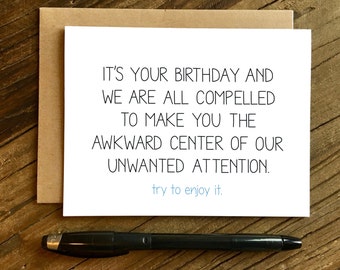 IT'S YOUR BIRTHDAY AND
WE ARE ALL COMPELLED
TO MAKE YOU THE
AWKWARD CENTER OF OUR
UNWANTED ATTENTION.
try to enjoy it.